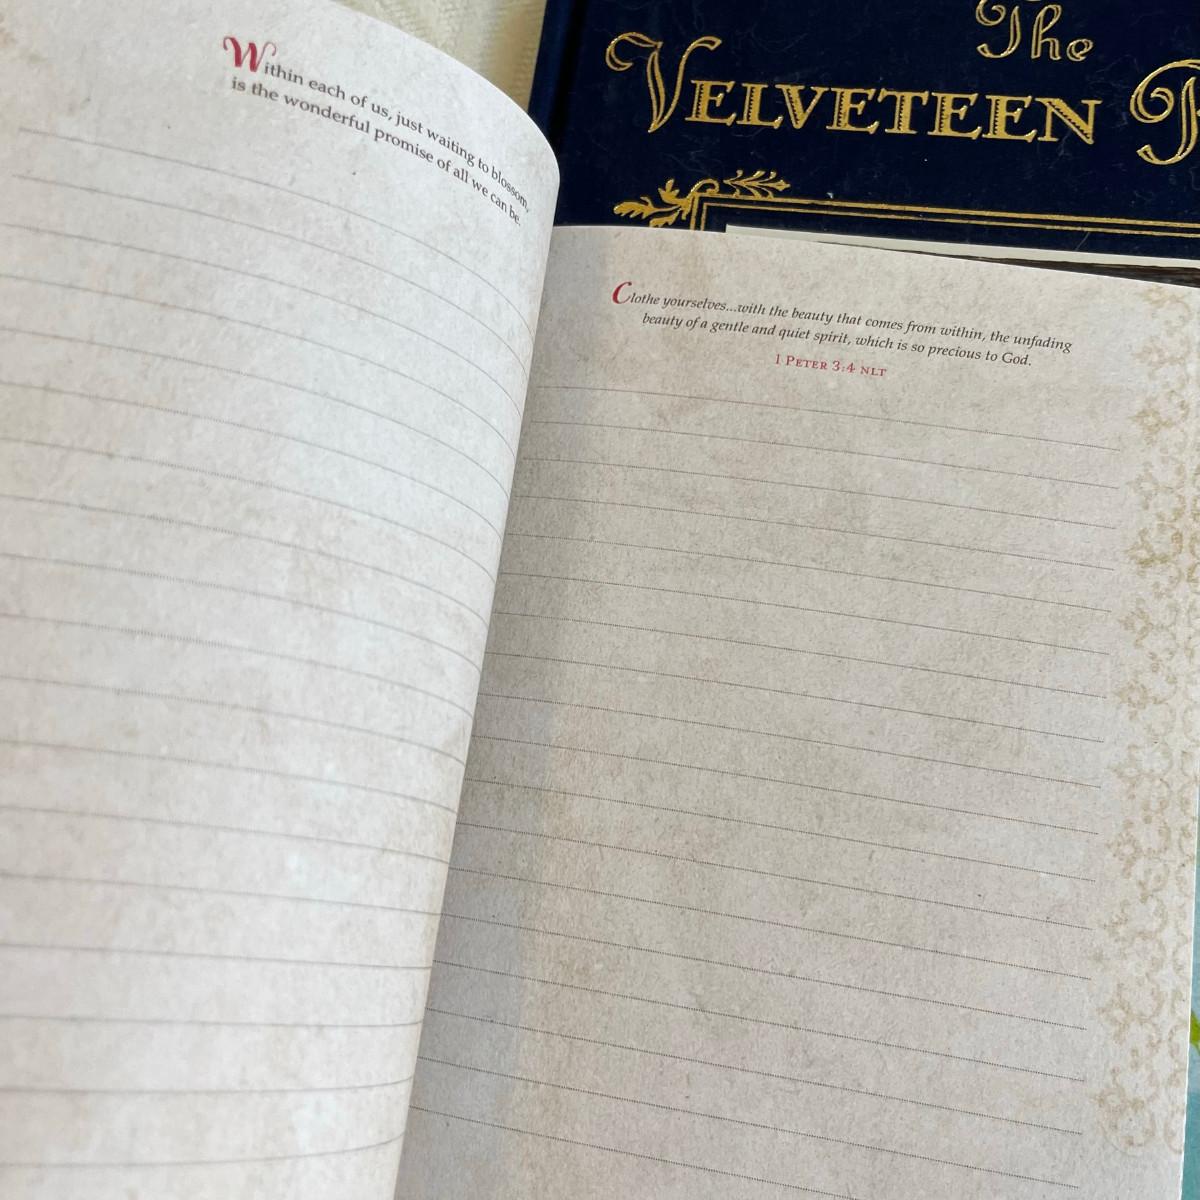 Within each of us, just waiting to blossom,
is the wonderful promise of all we can be.
The
VELVETEEN
Clothe yourselves...with the beauty that comes from within, the unfading
beauty of a gentle and quiet spirit, which is so precious to God.
1 PETER 3:4 NLT